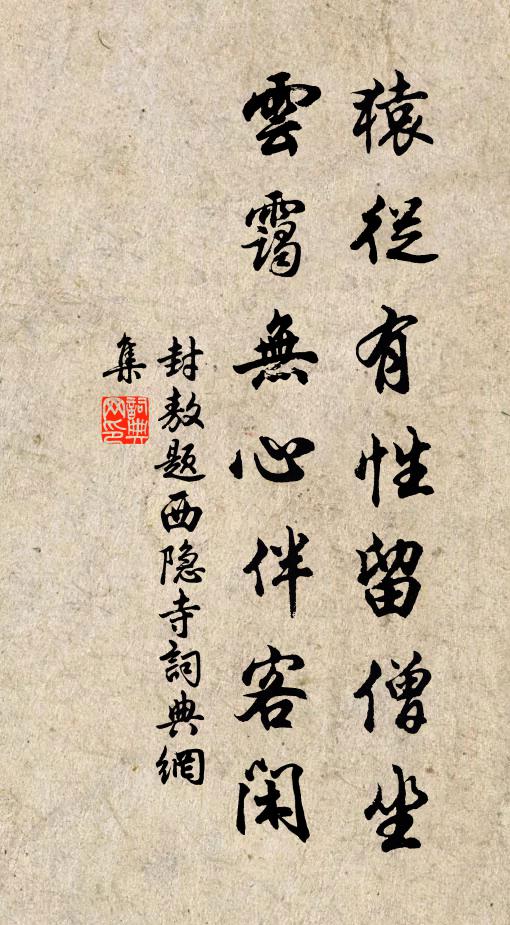 猿從有性留僧坐
雲靄無心伴客閑
封敖题西隐寺詞典網
集
詞典網印